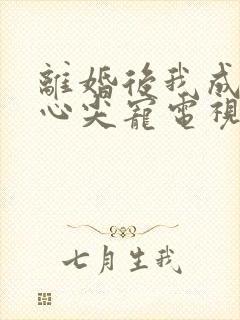 離婚後我成
心尖寵電視
七月生我